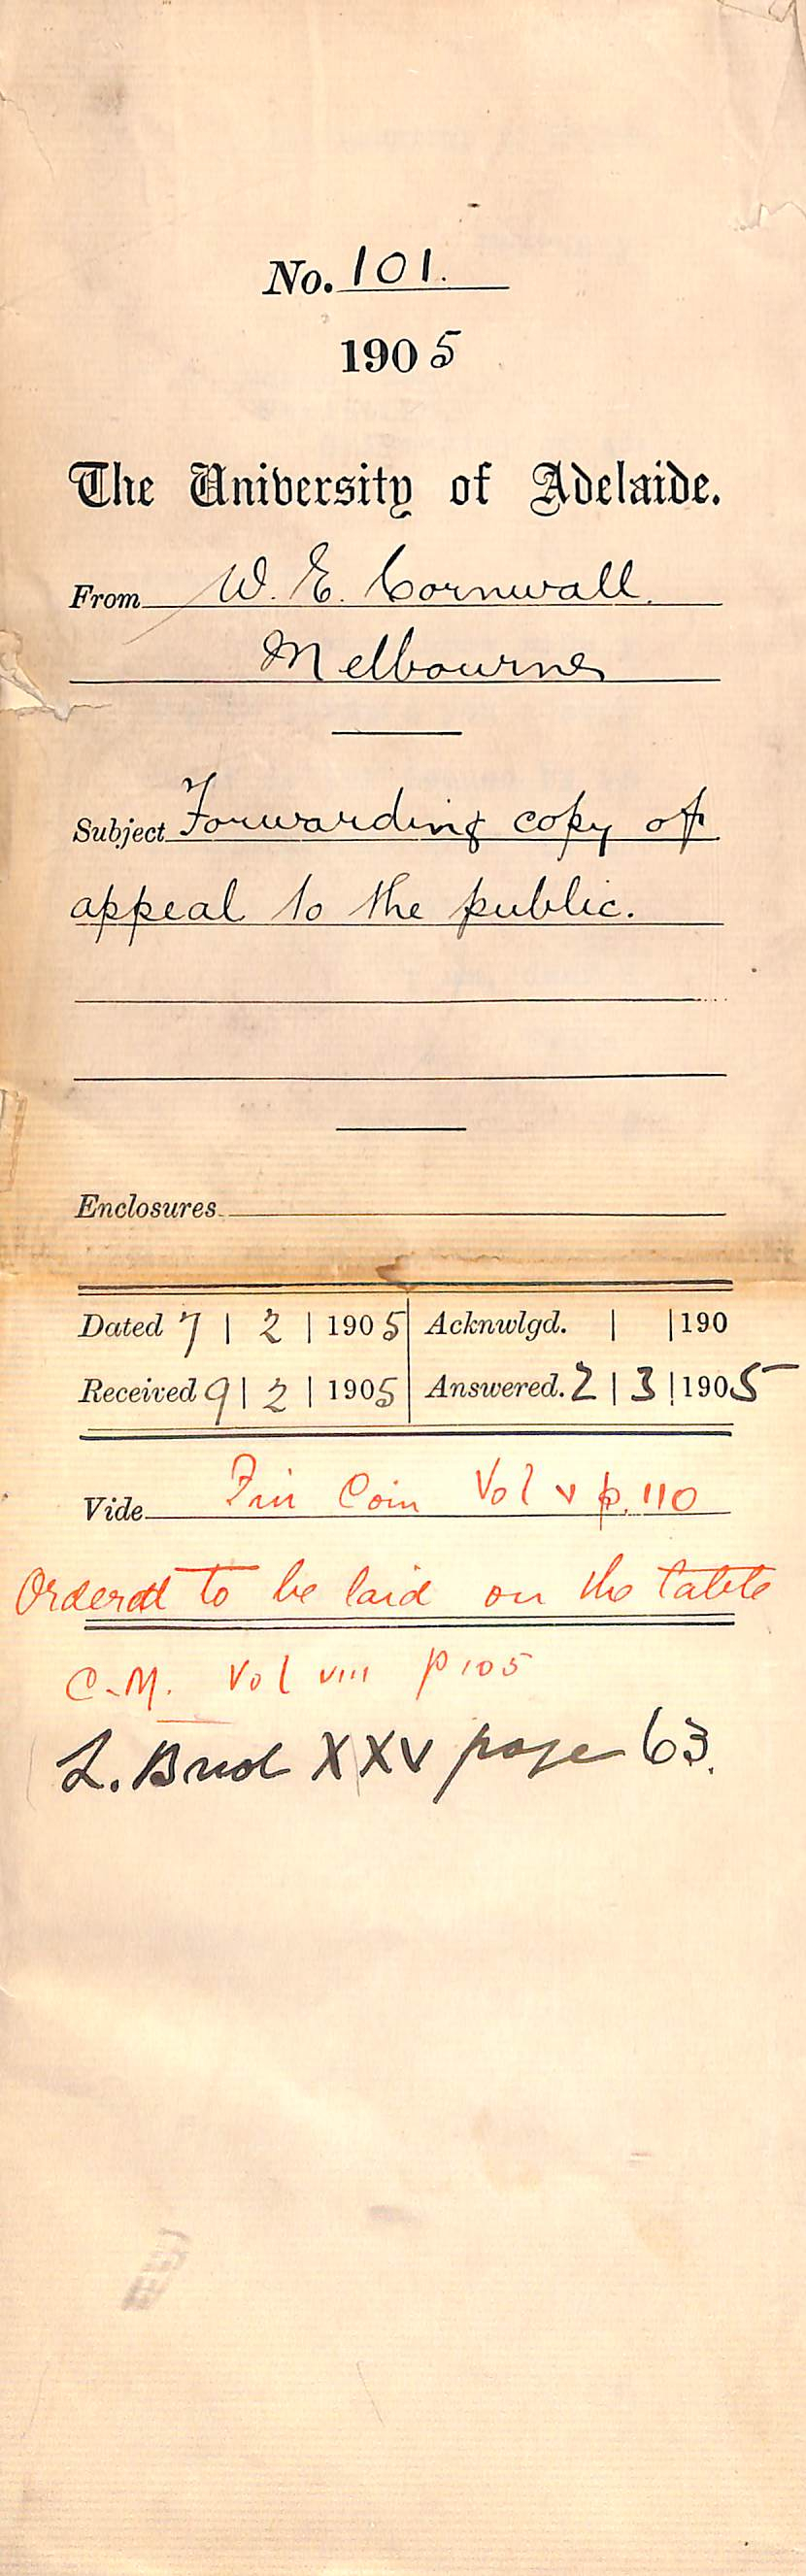 No. 101.
1905
The University of Adelaide.
From W. E. Cornwall.
Melbourne
Subject Forwarding copy of
appeal to the public.
Enclosures
Dated 7 | 2 | 1905 Acknwlgd. | | 190
Received 9 | 2 | 1905 Answered. 2 | 3 | 1905
Vide Fin Com Vol v p. 110
Ordered to be laid on the table
C.M. Vol viii p 105
L. Book XXV page 63.